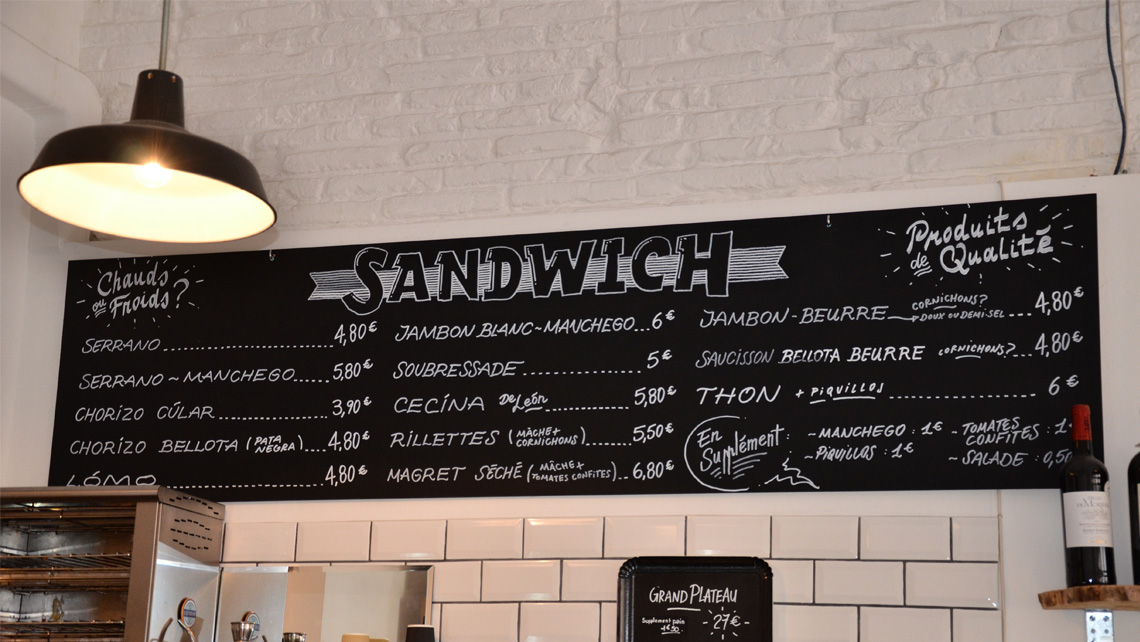 Chauds
ou Froids?
SANDWICH
Produits
de Qualité
SERRANO 4,80€
SERRANO~MANCHEGO 5,80€
CHORIZO CÚLAR 3,90€
CHORIZO BELLOTA (PATA NEGRA) 4,80€
LÓMO 4,80€
JAMBON BLANC~MANCHEGO...6€
SOUBRESSADE 5€
CECÍNA De León 5,80€
RILLETTES (MÂCHE+ CORNICHONS) 5,50€
MAGRET SÉCHÉ (MÂCHE+ TOMATES CONFITES)..6,80€
JAMBON-BEURRE CORNICHONS? DOUX OU DEMI-SEL ...4,80€
SAUCISSON BELLOTA BEURRE CORNICHONS?...4,80€
THON + PIQUILLOS 6€
En Supplément:
~MANCHEGO : 1€
~PIQUILLOS : 1€
~TOMATES CONFITES : 1
~SALADE : 0,50
GRAND PLATEAU
27€
Supplement pain
1€50